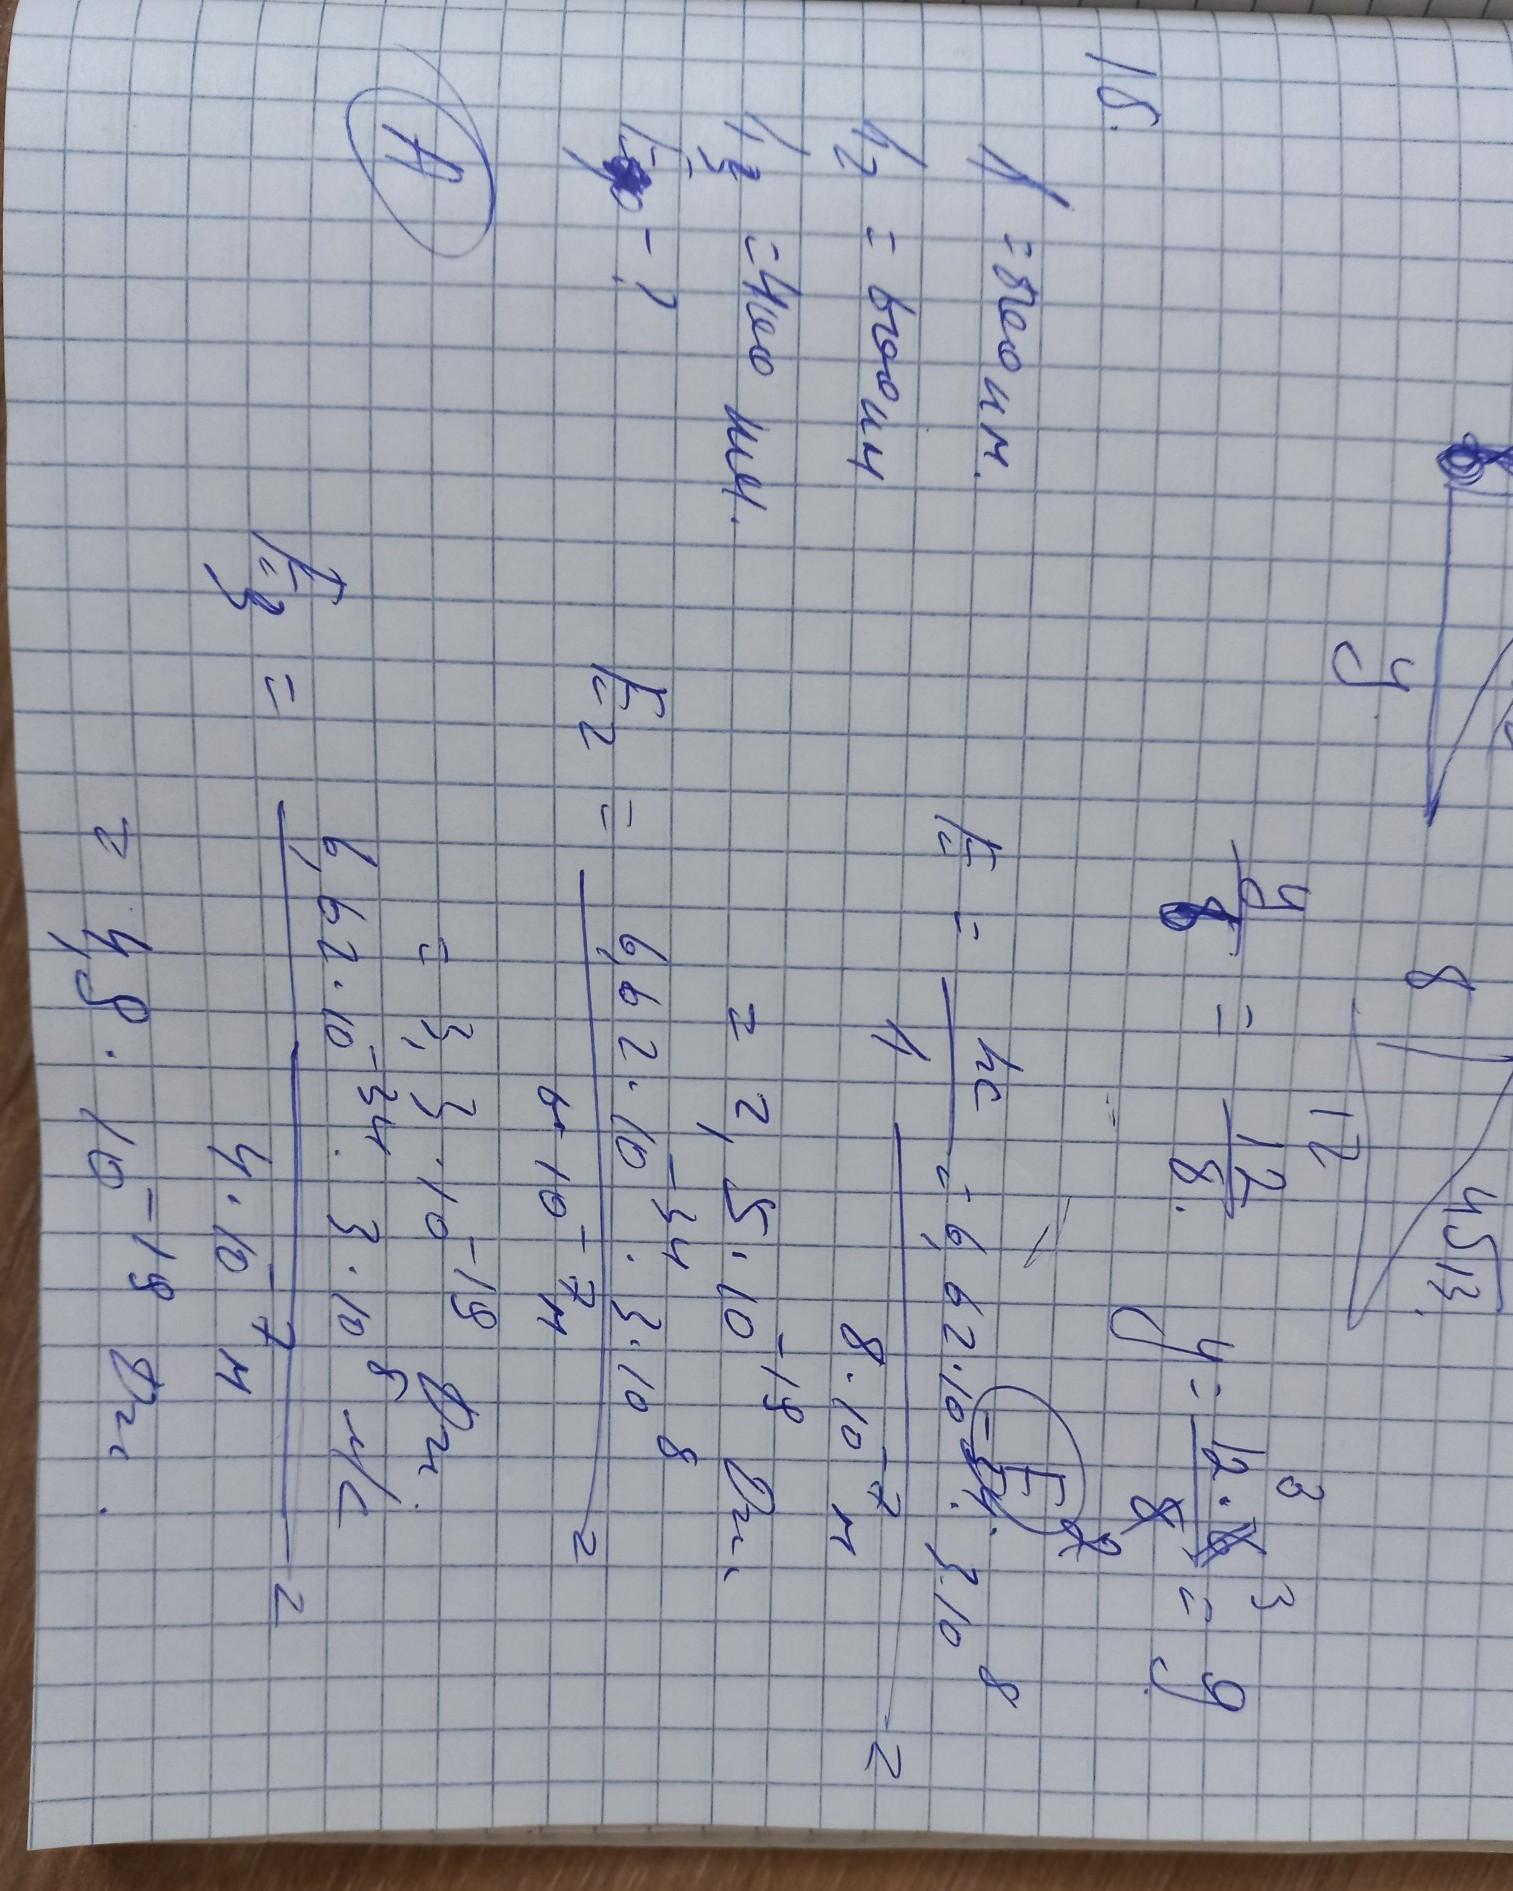 y
8
12
4513.
y/8 = 12/8.
y = 12·8/8 = 9
3
3
18.
λ = 800 нм.
λ2 = 600 нм
λ3 = 400 нм.
E0 - ?
A
E = hc/λ = 6,62·10^-34·3·10^8 / 8·10^-7 м =
= 2,5·10^-19 Дж.
E2 = 6,62·10^-34·3·10^8 / 6·10^-7 м =
= 3,3·10^-19 Дж.
E3 = 6,62·10^-34·3·10^8 м/с / 4·10^-7 м =
= 4,9·10^-19 Дж.